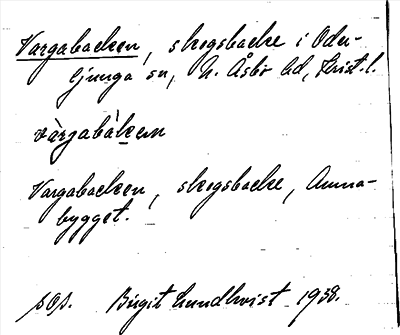 Vargabacken, skogsbacke i Oder-
ljunga sn, N. Åsbo hd, Krist. l.
vàrgabàken
Vargabacken, skogsbacke, Anna-
bygget.
pop. Birgit Lundkvist 1938.